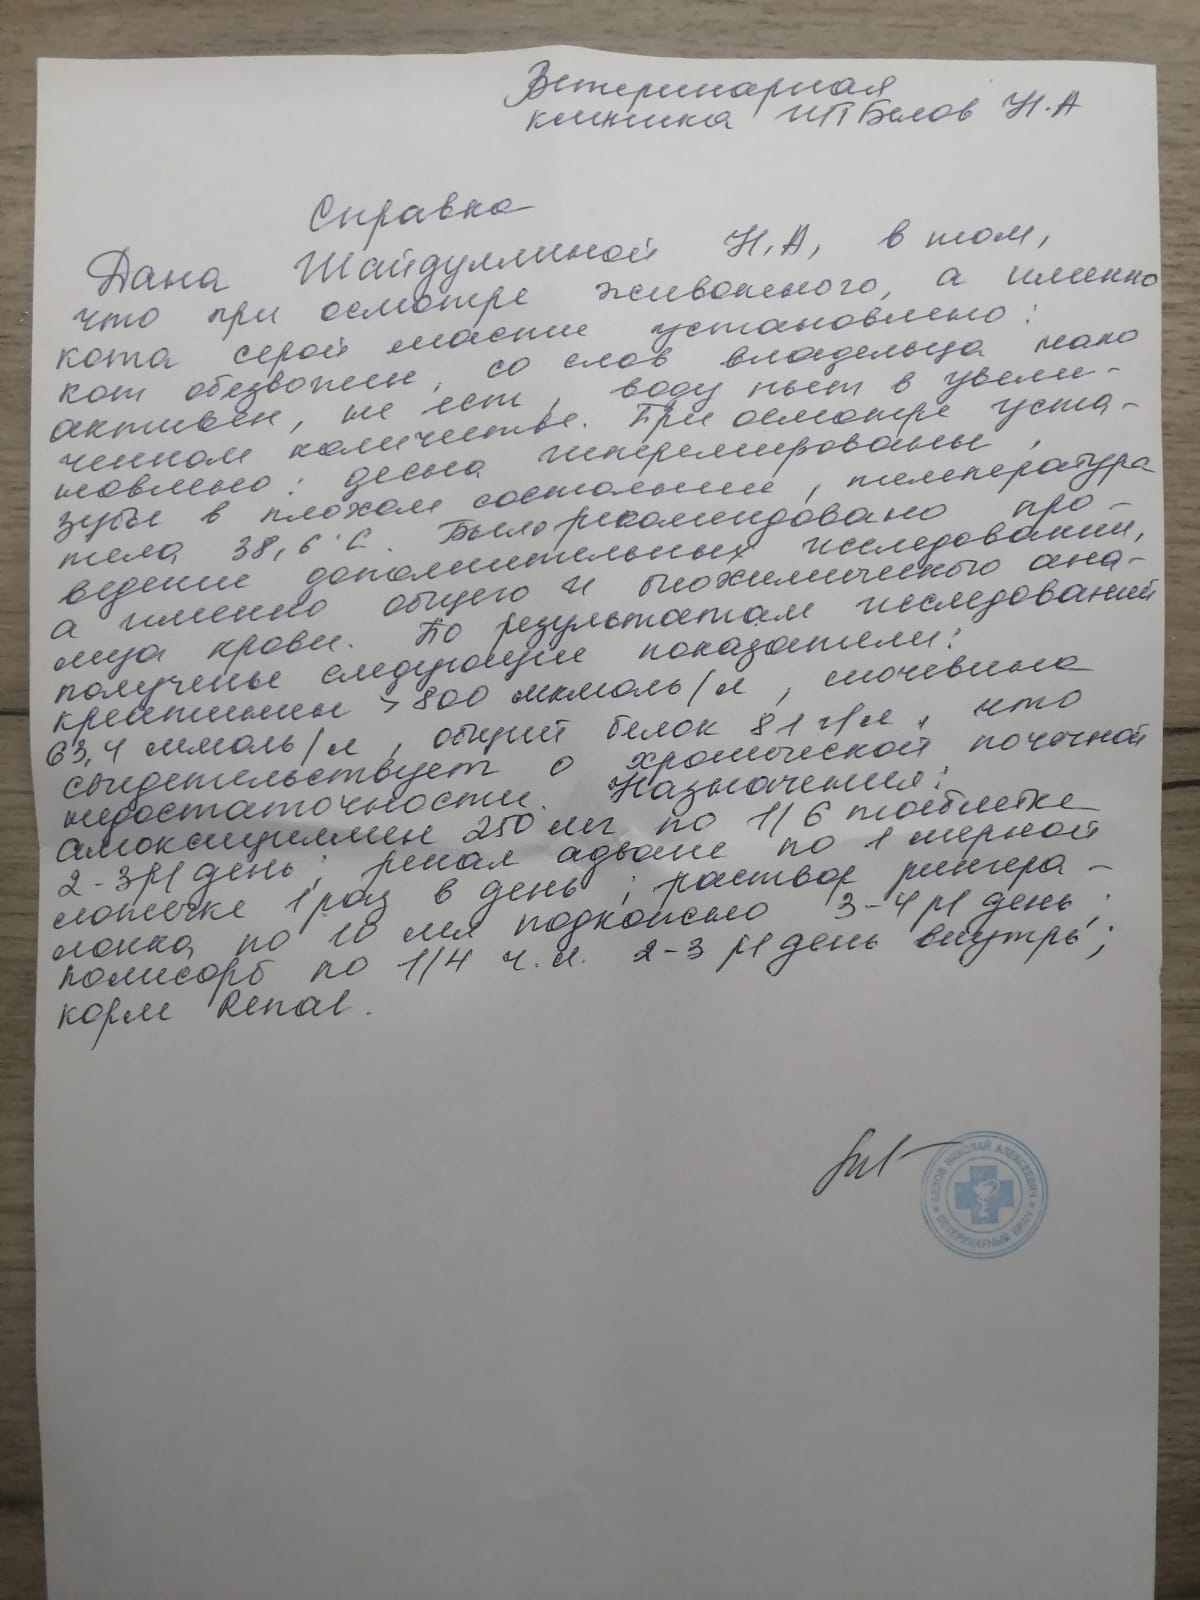 Ветеринарная
клиника ИП Белов Н.А
Справка
Дана Шайдуллиной Н,А, в том,
что при осмотре животного, а именно
кота серой масти установлено:
кот обезвожен, со слов владельца мало
активен, не ест, воду пьет в увели-
ченном количестве. При осмотре уста-
новлено: десна гиперемированы,
зубы в плохом состоянии, температура
тела 38,6°С. Было рекомендовано про-
ведение дополнительных исследований,
а именно общего и биохимического ана-
лиза крови. По результатам исследований
получены следующие показатели:
креатинин >800 мкмоль/л, мочевина
63,4 ммоль/л, общий белок 81 г/л, что
свидетельствует о хронической почечной
недостаточности. Назначения:
амоксициллин 250 мг по 1/6 таблетке
2-3 р/день; ренал адванс по 1 мерной
ложечке 1 раз в день; раствор рингера-
локка по 10 мл подкожно 3-4 р/день;
полисорб по 1/4 ч.л. 2-3 р/день внутрь;
корм Renal.
БЕЛОВ НИКОЛАЙ АЛЕКСЕЕВИЧ
ВЕТЕРИНАРНЫЙ ВРАЧ